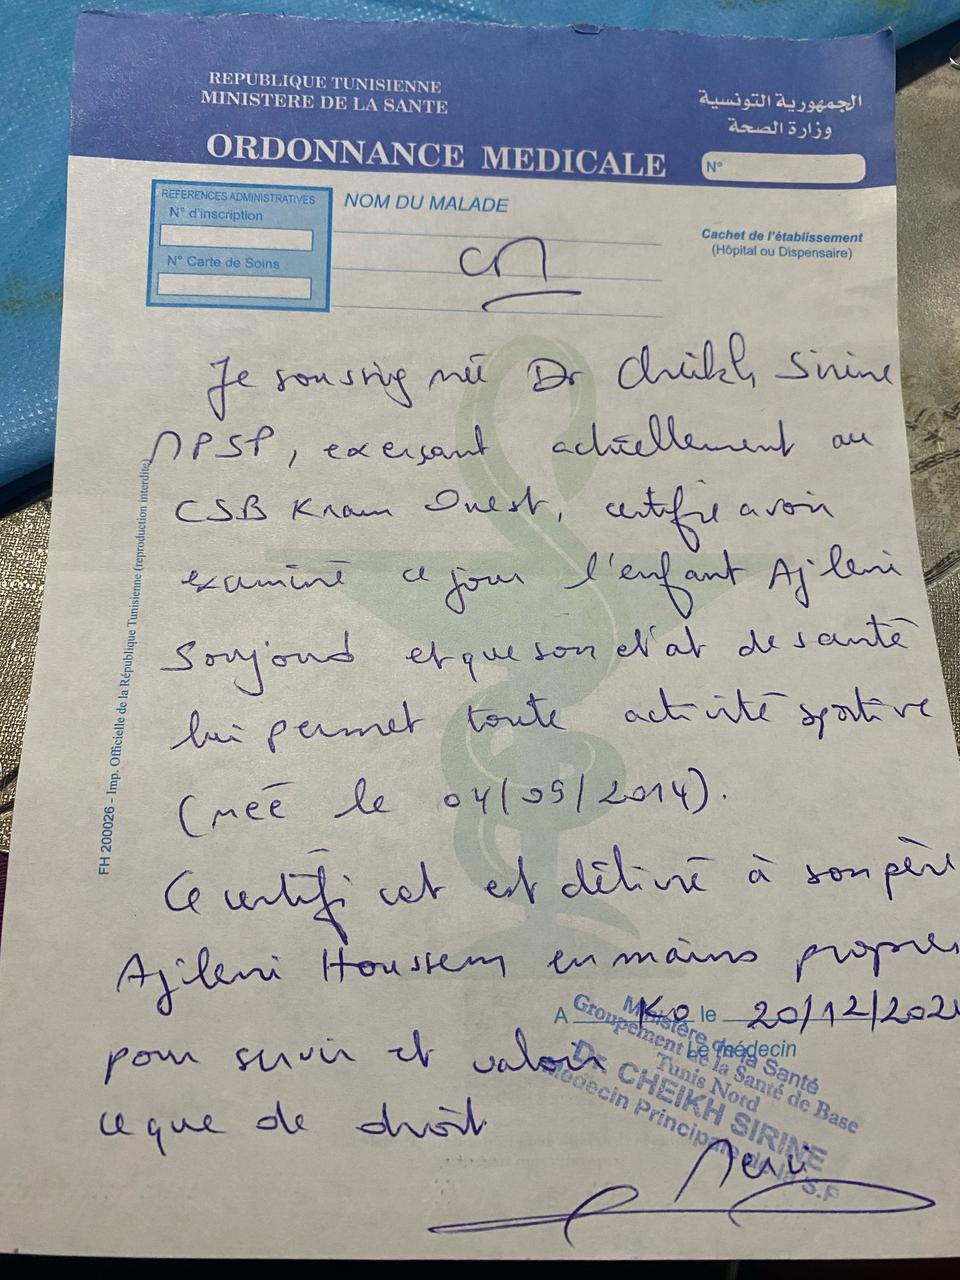 REPUBLIQUE TUNISIENNE
MINISTERE DE LA SANTE
الجمهورية التونسية
وزارة الصحة
ORDONNANCE MEDICALE
N°
REFERENCES ADMINISTRATIVES
N° d'inscription
N° Carte de Soins
NOM DU MALADE
Cachet de l'établissement
(Hôpital ou Dispensaire)
CM
Je soussigné Dr Cheikh Sirine
MPSP, exerçant actuellement au
CSB Kram Ouest, certifie avoir
examiné ce jour l'enfant Ajleni
Soujoud et que son état de santé
lui permet toute activité sportive
(née le 04/09/2014).
Ce certificat est délivré à son père
Ajleni Houssem en mains propres
A Ko le 20/12/202
pour servir et valoir
Le médecin
ce que de droit
Ministère de la Santé
Groupement de la Santé de Base
Tunis Nord
Dr CHEIKH SIRINE
Médecin Principale de la S.P
FH 200026 - Imp. Officielle de la République Tunisienne (reproduction interdite)